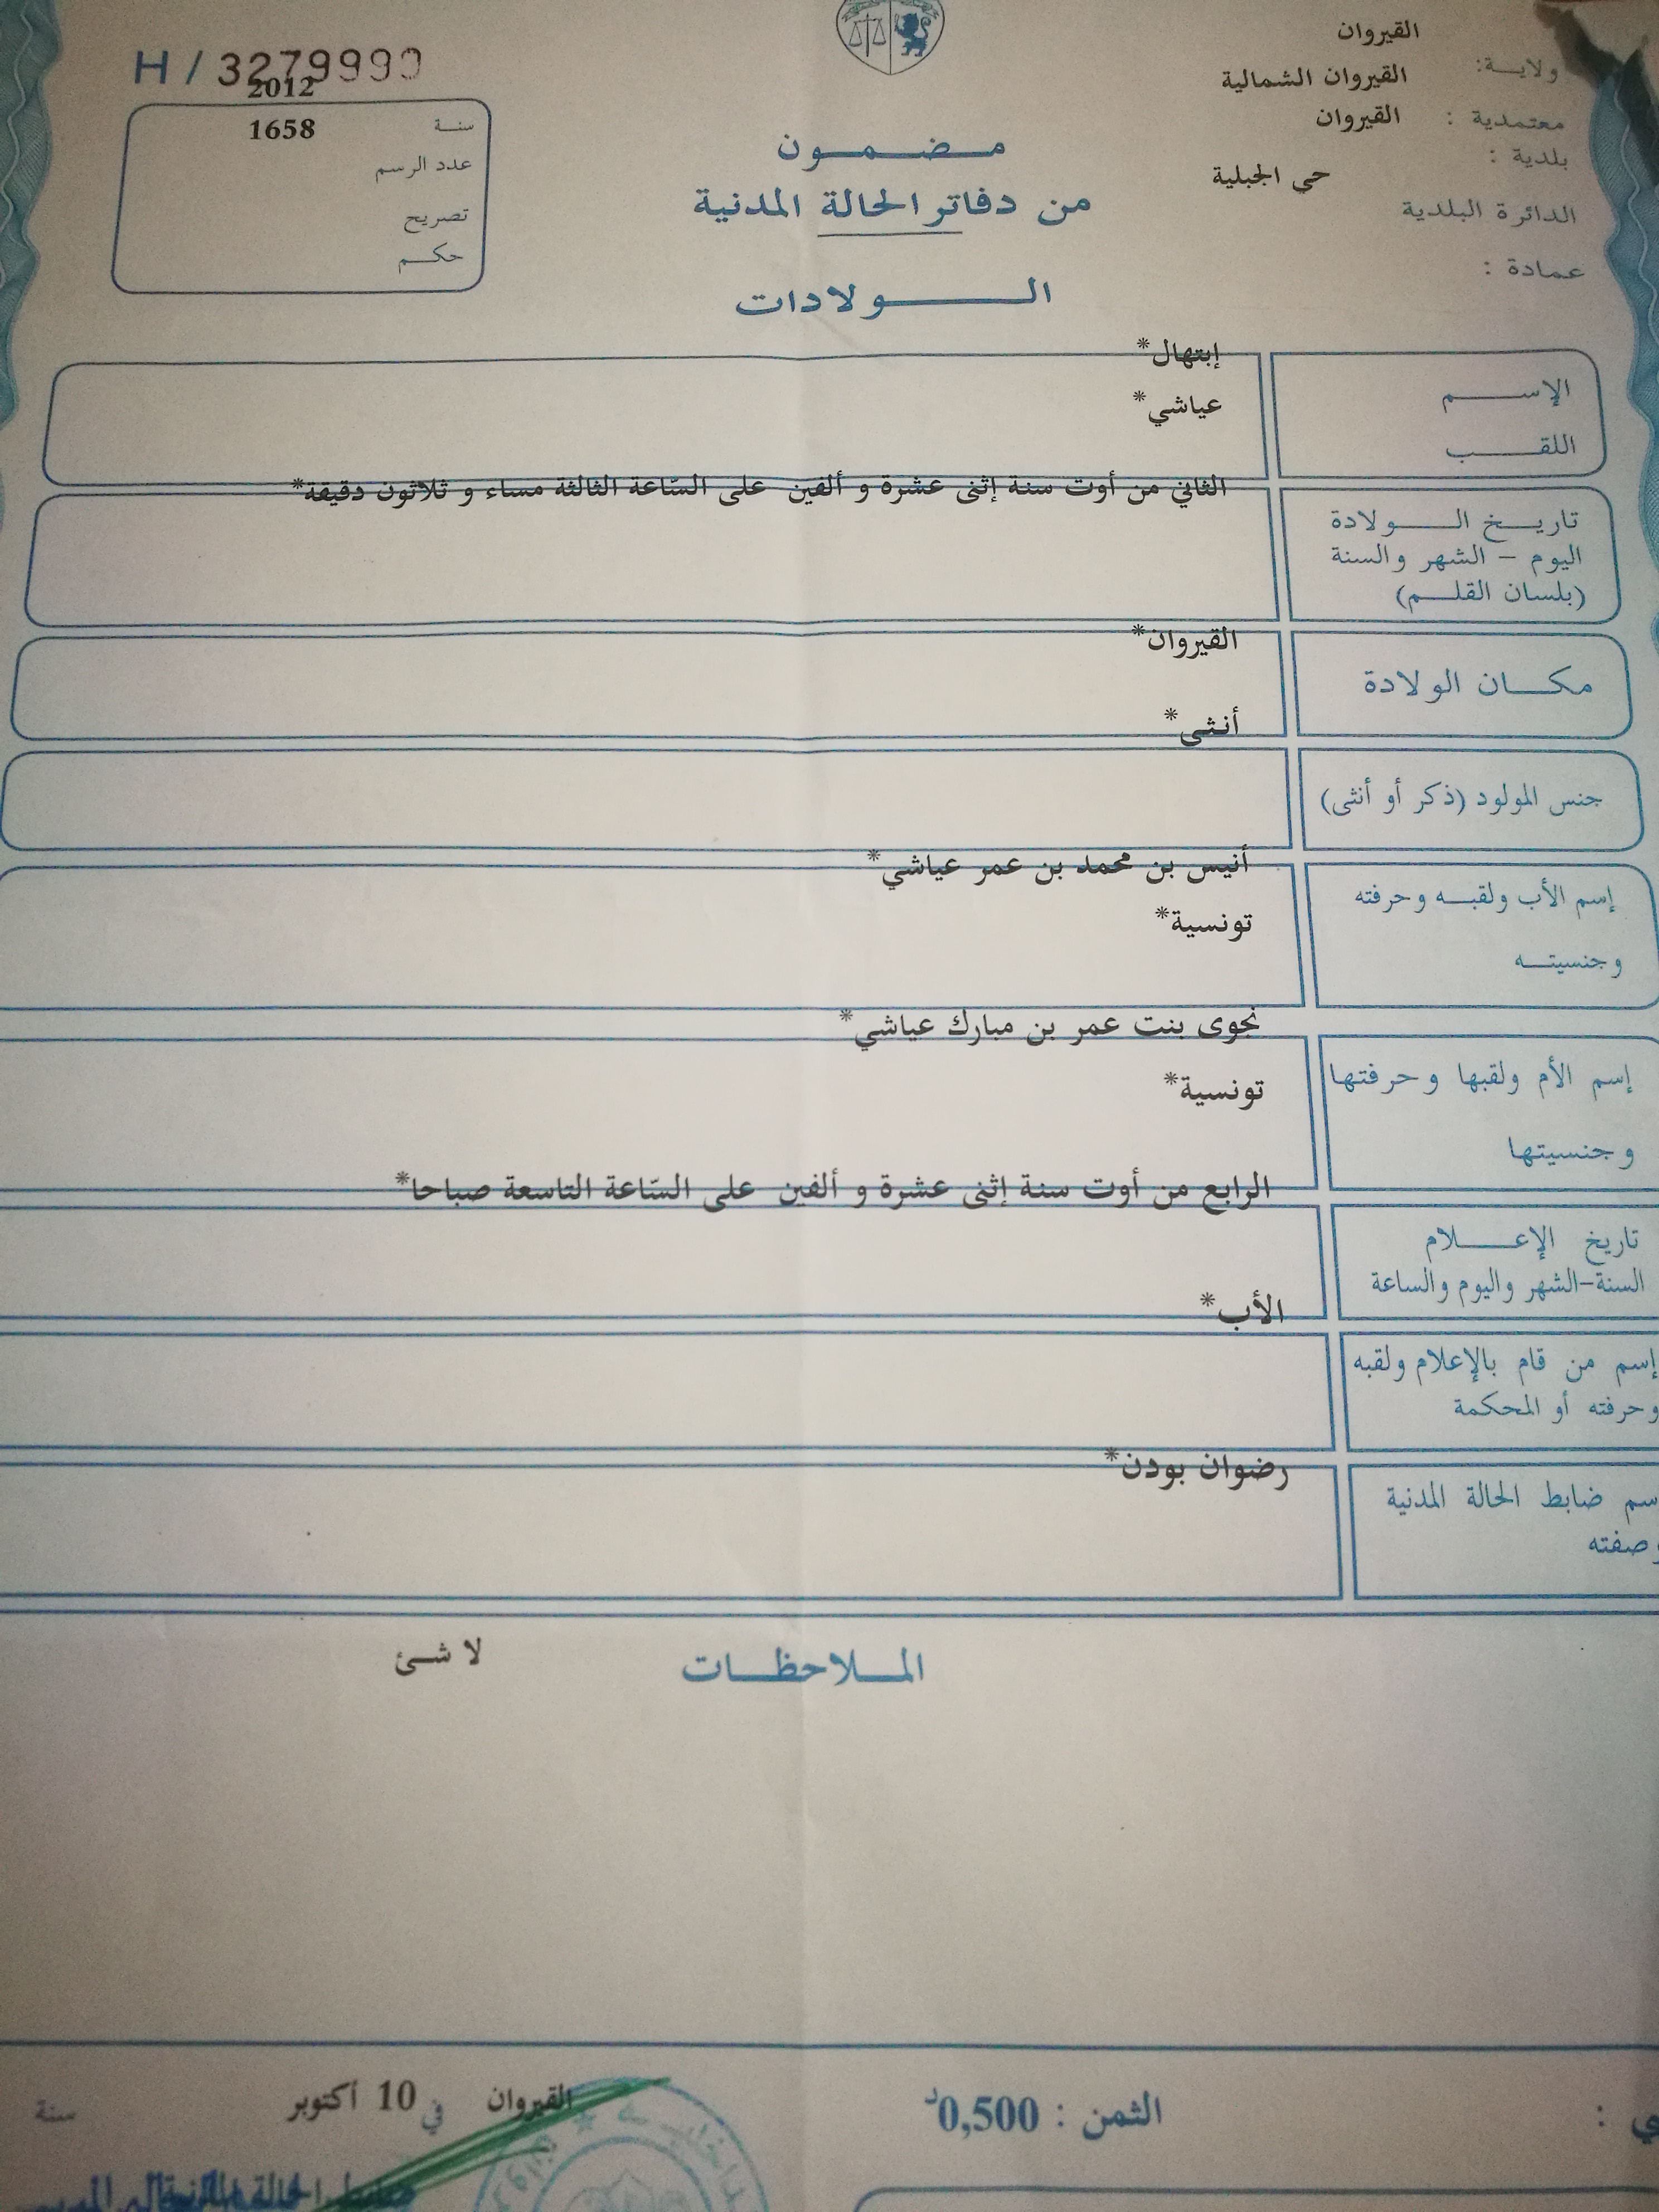 H / 3279990
القيروان
ولاية:
القيروان الشمالية
معتمدية :
القيروان
بلدية :
حي الجبلية
الدائرة البلدية
عمادة :
2012
سنة
1658
عدد الرسم
تصريح
حكم
مضمون
من دفاتر الحالة المدنية
الولادات
إبتهال*
الإسم
عياشي*
اللقب
الثاني من أوت سنة إثنى عشرة و ألفين على السّاعة الثالثة مساء و ثلاثون دقيقة*
تاريخ الولادة
اليوم – الشهر والسنة
(بلسان القلم)
القيروان*
مكان الولادة
أنثى*
جنس المولود (ذكر أو أنثى)
أنيس بن محمد بن عمر عياشي*
إسم الأب ولقبه وحرفته
تونسية*
وجنسيته
نجوى بنت عمر بن مبارك عياشي*
إسم الأم ولقبها وحرفتها
تونسية*
وجنسيتها
الرابع من أوت سنة إثنى عشرة و ألفين على السّاعة التاسعة صباحا*
تاريخ الإعلام
السنة-الشهر واليوم والساعة
الأب*
إسم من قام بالإعلام ولقبه
وحرفته أو المحكمة
رضوان بودن*
سم ضابط الحالة المدنية
وصفته
الملاحظات
لا شئ
الثمن : 0,500د
القيروان في 10 أكتوبر سنة